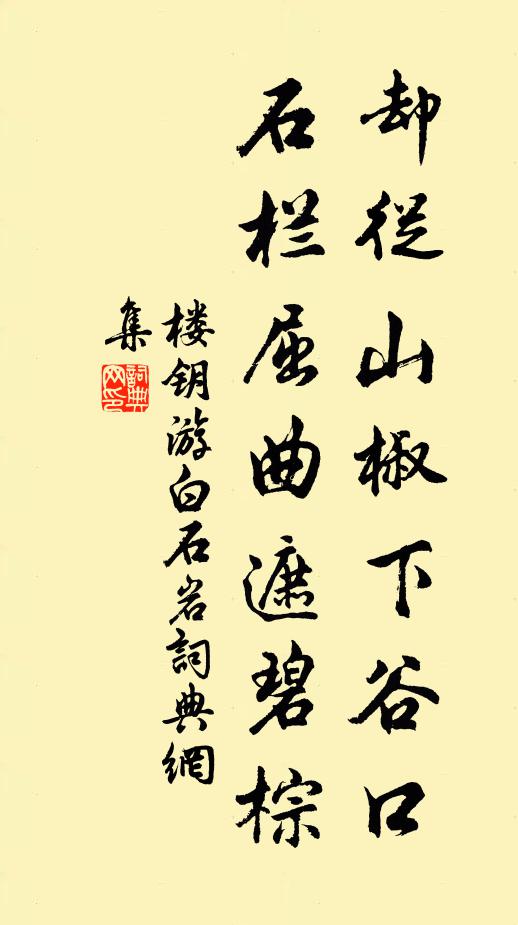 却從山椒下谷口
石栏屈曲遮碧棕
楼钥游白石岩詞典網
集
詞典網印